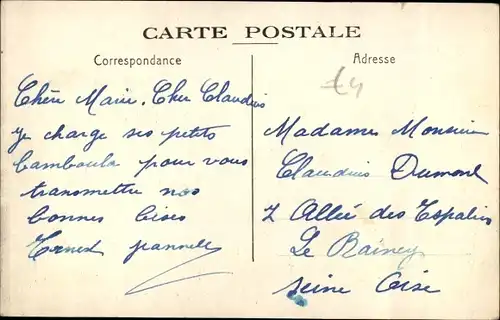 CARTE POSTALE
Correspondance
Chère Marie. Cher Claudius
je charge ses petits
bamboula pour vous
transmettre nos
bonnes bises
Ernest Jeannette
Adresse
Madame Monsieur
Claudius Dumont
7 Allée des Espaliers
Le Raincy
Seine Oise